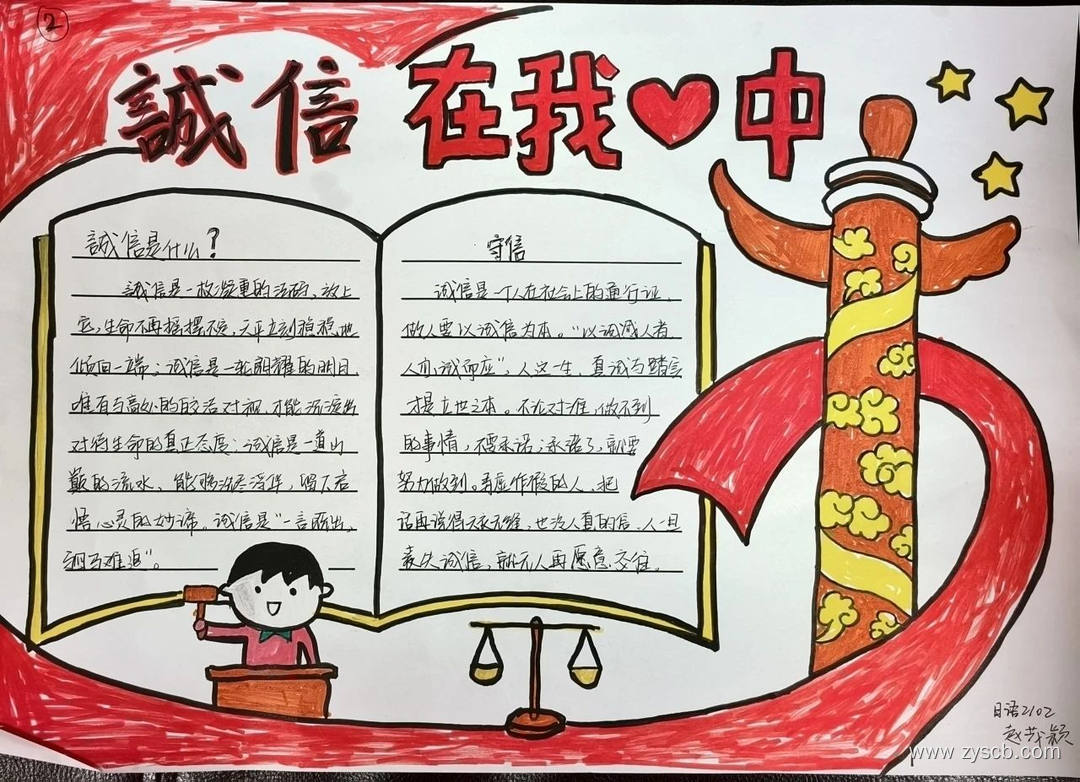 2
誠信在我中
誠信是什么?
誠信是一枚凝重的砝码,放上
它,生命不再摇摆不定,天平立刻稳稳地
倾向一端;诚信是一轮朗耀的明月,
唯有与高处的皎洁对视,才能沉淀出
对待生命的真正态度;诚信是一道山
巅的流水,能够洗尽浮华,留下启
悟心灵的妙谛。诚信是“一言既出,
驷马难追”。
守信
诚信是一个人在社会上的通行证,
做人要以诚信为本。“以诚感人者
人亦诚而应”,人这一生,真诚与踏实
才是立世之本。不论对谁,做不到
的事情,不要承诺;承诺了,就要
努力做到。弄虚作假的人,把
话再说得天衣无缝,也没人真的信。人一旦
丧失诚信,就无人再愿意交往。
日语2102
www.zyscb.com